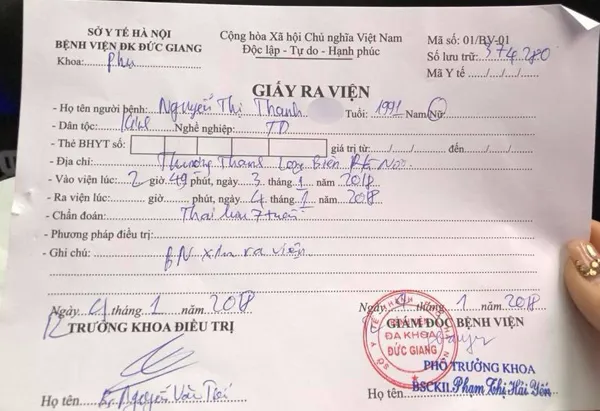 SỞ Y TẾ HÀ NỘI
BỆNH VIỆN ĐK ĐỨC GIANG
Khoa: Phụ
Cộng hòa Xã hội Chủ nghĩa Việt Nam
Độc lập - Tự do - Hạnh phúc
Mã số: 01/BV-01
Số lưu trữ: 374.280
Mã Y tế ....../....../....../......
GIẤY RA VIỆN
- Họ tên người bệnh: Nguyễn Thị Thanh Tuổi: 1991 Nam/Nữ
- Dân tộc: Kinh Nghề nghiệp: TD
- Thẻ BHYT số: giá trị từ: ....../....../...... đến ....../....../......
- Địa chỉ: Thượng Thanh Long Biên
- Vào viện lúc: 2 giờ 49 phút, ngày 3 tháng 1 năm 2018
- Ra viện lúc: ...... giờ ...... phút, ngày 4 tháng 1 năm 2018
- Chẩn đoán: Thai lưu 7 tuần
- Phương pháp điều trị:
- Ghi chú: BN xin ra viện
Ngày 4 tháng 1 năm 2018
TRƯỞNG KHOA ĐIỀU TRỊ
Ngày 4 tháng 1 năm 2018
GIÁM ĐỐC BỆNH VIỆN
ĐA KHOA
ĐỨC GIANG
PHÓ TRƯỞNG KHOA
Họ tên Nguyễn Văn
Họ tên BSCKII. Phạm Thị Hải Yến